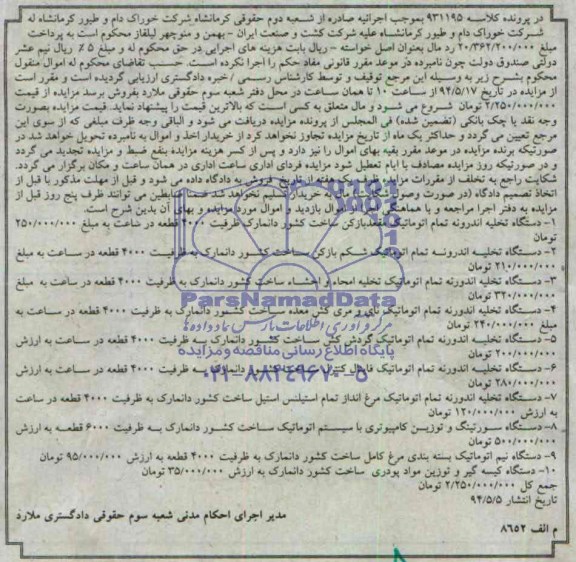 در پرونده کلاسه ۹۳۱۱۹۵ بموجب اجرائیه صادره از شعبه دوم حقوقی کرمانشاه شرکت خوراک دام و طیور کرمانشاه له
شرکت خوراک دام و طیور کرمانشاه علیه شرکت کشت و صنعت ایران - بهمن و منوچهر لیلقاز محکوم است به پرداخت
مبلغ ۲۰/۳۶۲/۲۰۰/۰۰۰ رد مال بعنوان اصل خواسته - ریال بابت هزینه های اجرایی در حق محکوم له و مبلغ ۵٪ ریال نیم عشر
دولتی صندوق دولت چون نامبرده در موعد مقرر قانونی مفاد حکم را اجرا نکرده است. حسب تقاضای محکوم له اموال منقول
محکوم بشرح زیر به وسیله این مرجع توقیف و توسط کارشناس رسمی / خبره دادگستری ارزیابی گردیده است و مقرر است
از مزایده در تاریخ ۹۴/۵/۱۷ از ساعت ۱۰ تا همان ساعت در محل دفتر شعبه سوم حقوقی ملارد بفروش برسد مزایده از قیمت
۲/۲۵۰/۰۰۰/۰۰۰ تومان شروع می شود و مال متعلق به کسی است که بالاترین قیمت را پیشنهاد نماید. قیمت مزایده بصورت
وجه نقد یا چک بانکی (تضمین شده) فی المجلس از برنده مزایده دریافت می شود و الباقی وجه ظرف مبلغی که از سوی این
مرجع تعیین می گردد و حداکثر یک ماه از تاریخ مزایده تجاوز نخواهد کرد از خریدار اخذ و اموال به نامبرده تحویل خواهد شد در
صورتیکه برنده مزایده در موعد مقرر بقیه بهای اموال را نپردازد و پس از کسر هزینه مزایده بنفع ضبط و مزایده تجدید می گردد
و در صورتیکه روز مزایده مصادف با ایام تعطیل شود مزایده فردای اداری ساعت اداری در همان ساعت و مکان برگزار می گردد.
شکایت راجع به تخلف از مقررات مزایده ظرف یک هفته از تاریخ فروش به دادگاه داده می شود و قبل از مهلت مذکور یا قبل از
اتخاذ تصمیم دادگاه (در صورت وصول به خریدار تسلیم نخواهد شد ضمنا متقاضیان می توانند ظرف پنج روز قبل از
مزایده به دفتر اجرا مراجعه و با هماهنگی از اموال بازدید و اموال مورد مزایده و بهای آن بدین شرح است.
۱- دستگاه تخلیه اندرونه تمام اتوماتیک مقعدبازکن ساخت کشور دانمارک ظرفیت ۴۰۰۰ قطعه در ساعت به مبلغ ۲۵۰/۰۰۰/۰۰۰
تومان
۲- دستگاه تخلیه اندرونه تمام اتوماتیک شکم بازکن ساخت کشور دانمارک به ظرفیت ۴۰۰۰ قطعه در ساعت به مبلغ
۲۱۰/۰۰۰/۰۰۰ تومان
۳- دستگاه تخلیه اندورنه تمام اتوماتیک تخلیه امحاء و احشاء ساخت کشور دانمارک به ظرفیت ۴۰۰۰ قطعه در ساعت به مبلغ
۳۲۰/۰۰۰/۰۰۰ تومان
ParsNamadData
مرکز فرآوری اطلاعات پارس نماد داده ها
پایگاه اطلاع رسانی مناقصه و مزایده
۰۲۱-۸۸۳۴۹۶۷۰-۵
۴- دستگاه تخلیه اندورنه تمام اتوماتیک نای و مری کش معده ساخت کشور دانمارک به ظرفیت ۴۰۰۰ قطعه در ساعت به
مبلغ ۲۴۰/۰۰۰/۰۰۰ تومان
۵- دستگاه تخلیه اندورنه تمام اتوماتیک گردش کش ساخت کشور دانمارک به ظرفیت ۴۰۰۰ قطعه در ساعت به ارزش
۲۰۰/۰۰۰/۰۰۰ تومان
۶- دستگاه تخلیه اندورنه تمام اتوماتیک فاینال کنترل ساخت کشور دانمارک به ظرفیت ۴۰۰۰ قطعه در ساعت به ارزش
۲۸۰/۰۰۰/۰۰۰ تومان
۷- دستگاه تخلیه اندورنه تمام اتوماتیک مرغ انداز تمام استیلنس استیل ساخت کشور دانمارک به ظرفیت ۴۰۰۰ قطعه در ساعت
به ارزش ۱۲۰/۰۰۰/۰۰۰ تومان
۸- دستگاه سورتینگ و توزیین کامپیوتری با سیستم اتوماتیک ساخت کشور دانمارک به ظرفیت ۶۰۰۰ قطعه به ارزش
۵۰۰/۰۰۰/۰۰۰ تومان
۹- دستگاه نیم اتوماتیک بسته بندی مرغ کامل ساخت کشور دانمارک به ظرفیت ۴۰۰۰ قطعه به ارزش ۹۵/۰۰۰/۰۰۰ تومان
۱۰- دستگاه کیسه گیر و توزین مواد پودری ساخت کشور دانمارک به ارزش ۳۵/۰۰۰/۰۰۰ تومان
جمع کل ۲/۲۵۰/۰۰۰/۰۰۰ تومان
تاریخ انتشار ۹۴/۵/۵
مدیر اجرای احکام مدنی شعبه سوم حقوقی دادگستری ملارد
م الف ۸۶۵۲